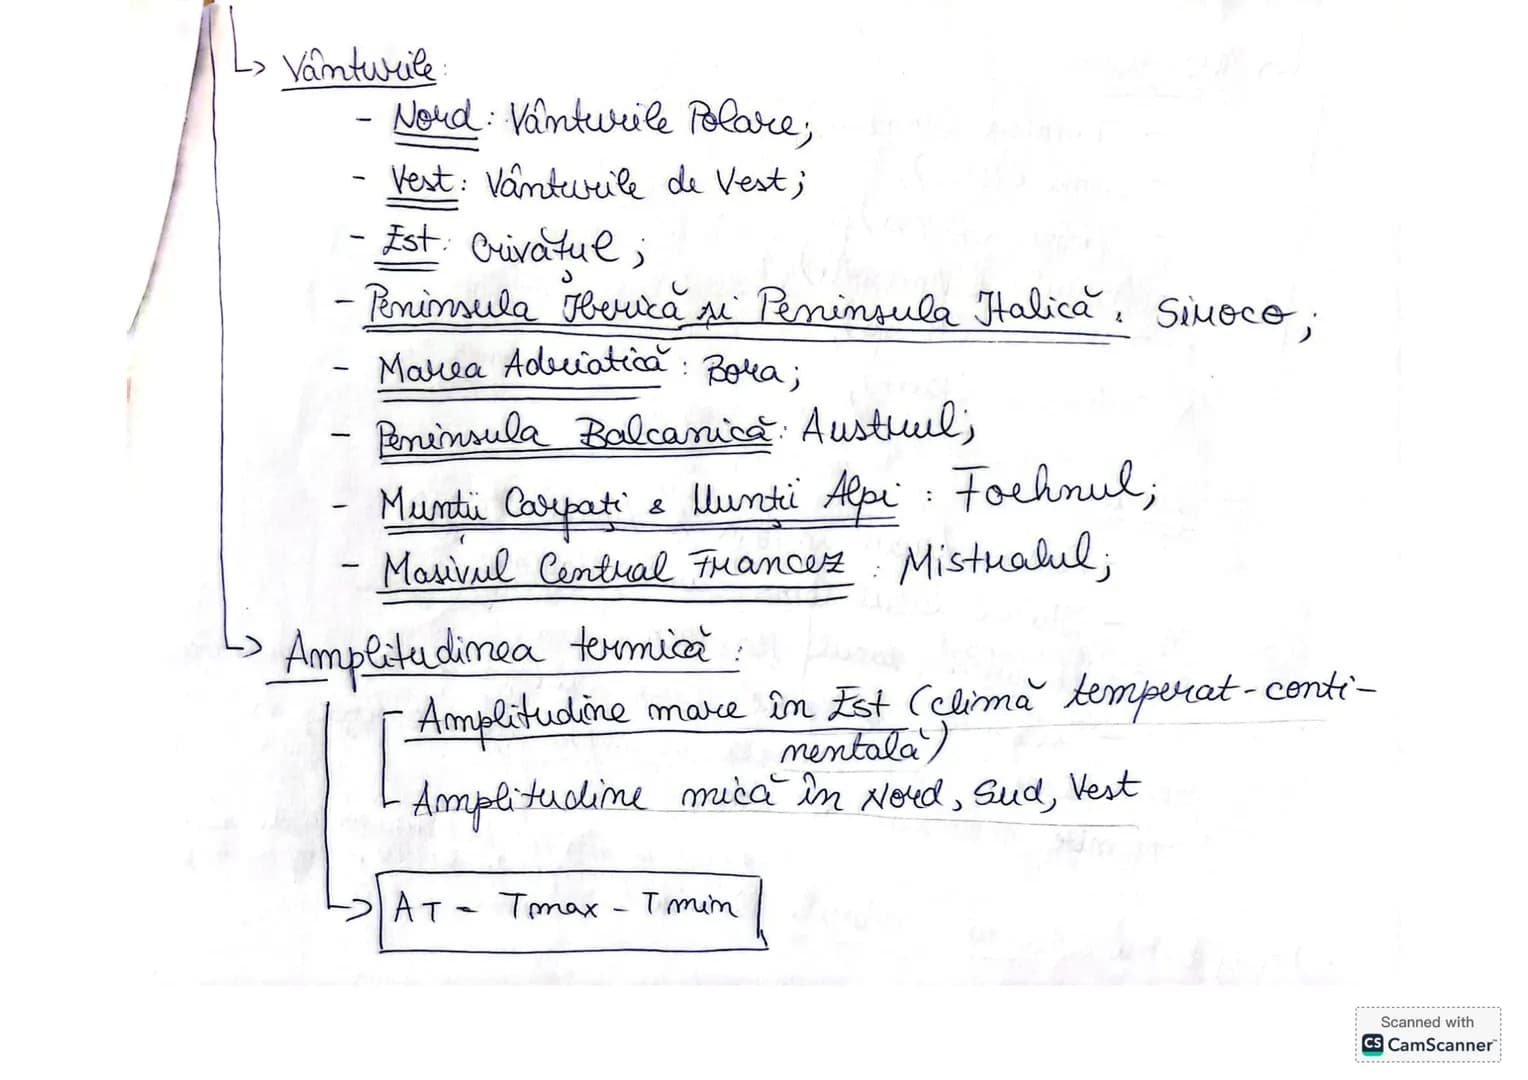 ↳ Vânturile:
- Nord: Vânturile Polare;
- Vest: Vânturile de Vest;
- Est: Crivățul;
- Peninsula Iberică și Peninsula Italică: Siroco;
- Marea Adriatică: Bora;
- Peninsula Balcanică: Austrul;
- Munții Carpați & Munții Alpi: Foehnul;
- Masivul Central Francez: Mistralul;
↳ Amplitudinea termică:
- Amplitudine mare în Est (climă temperat-conti-
nentală)
- Amplitudine mică în Nord, Sud, Vest
↳ AT - Tmax - Tmin
Scanned with
CS CamScanner